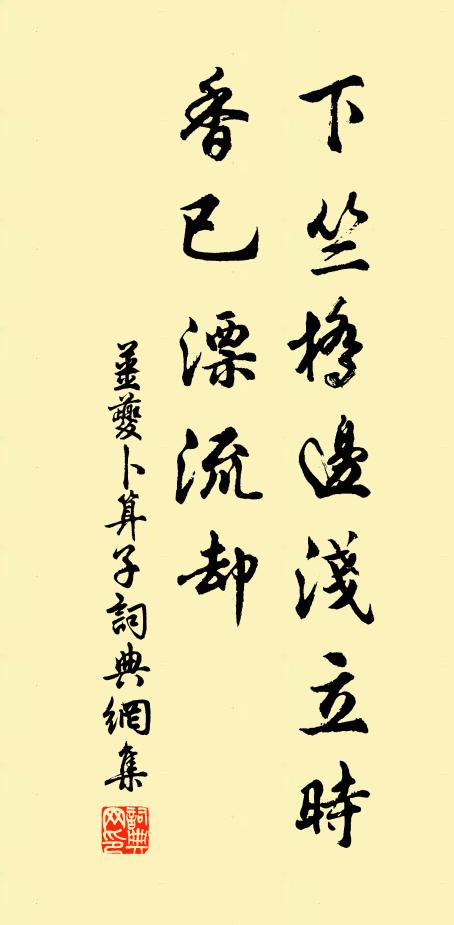 下竺橋邊淺立時
香已漂流却
薑夔卜算子詞典網集
詞典
网印